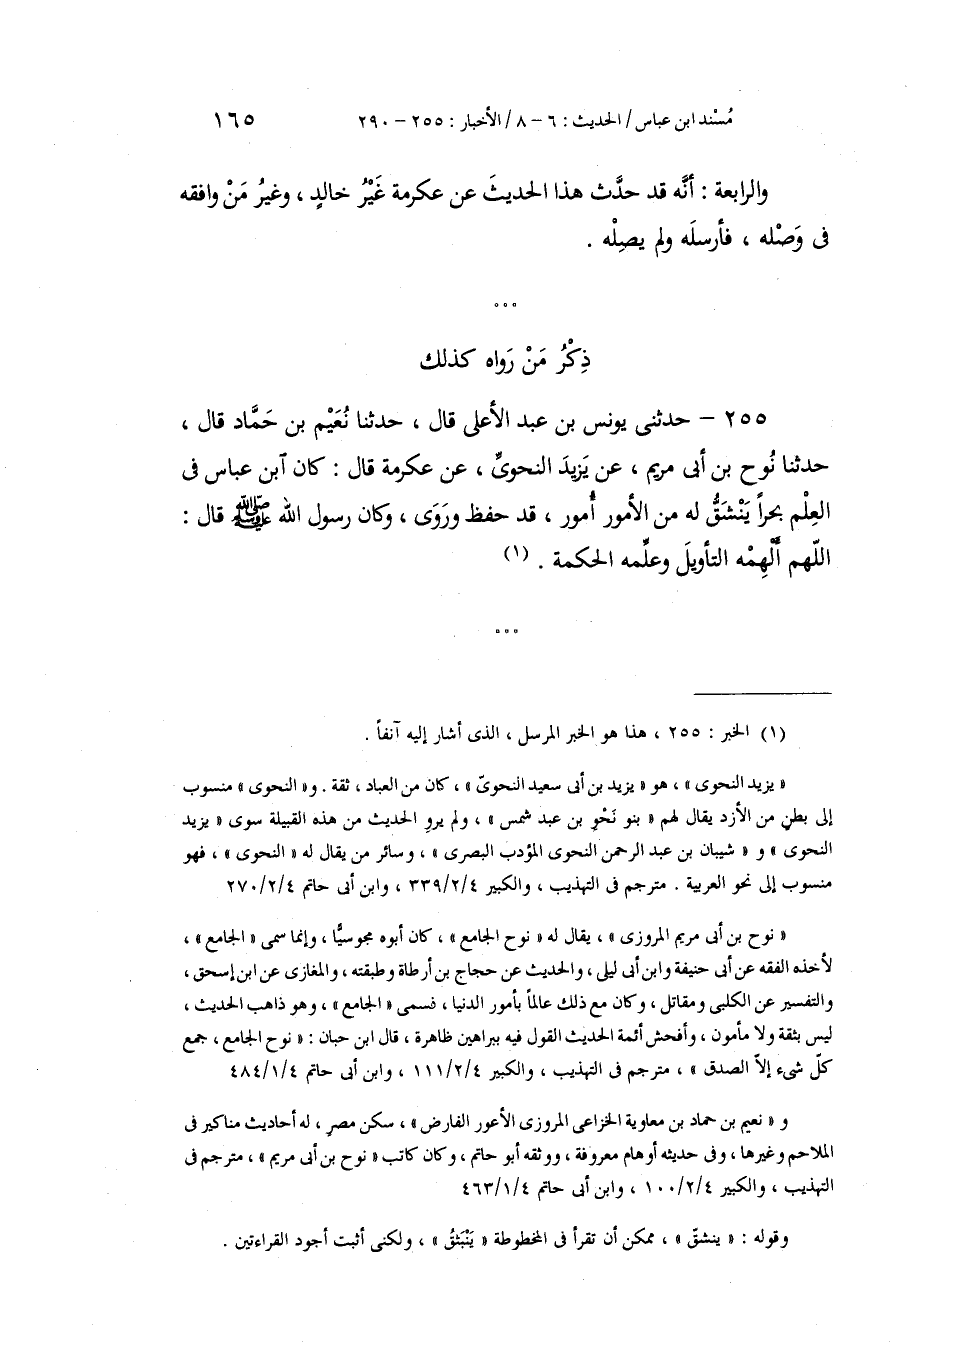 مُسْند ابن عباس / الحديث : ٦ – ٨ / الأخبار : ٢٥٥ – ٢٩٠ ١٦٥
والرابعة : أنَّه قد حدَّث هذا الحديثَ عن عكرمة غَيْرُ خالدٍ ، وغيرُ مَنْ وافقه
فى وَصْله ، فأرسلَه ولم يصِلْه .
ذِكْرُ مَنْ رَواه كذلك
٢٥٥ – حدثنى يونس بن عبد الأعلى قال ، حدثنا نُعَيْم بن حَمَّاد قال ،
حدثنا نُوح بن أبى مريم ، عن يَزِيدَ النحوىِّ ، عن عكرمة قال : كان آبن عباس فى
العِلْم بحراً يَنْشَقُّ له من الأمور أُمور ، قد حفظ ورَوَى ، وكان رسول الله ﷺ قال :
اللّهم أَلْهِمْه التأويلَ وعلِّمه الحكمة . (١)
(١) الخبر : ٢٥٥ ، هذا هو الخبر المرسل ، الذى أشار إليه آنفاً .
« يزيد النحوى » ، هو « يزيد بن أبى سعيد النحوىّ » ، كان من العباد ، ثقة . و« النحوى » منسوب
إلى بطنٍ من الأزد يقال لهم « بنو نَحْوِ بن عبد شمس » ، ولم يروِ الحديث من هذه القبيلة سوى « يزيد
النحوى » و « شيبان بن عبد الرحمن النحوى المؤدب البصرى » ، وسائر من يقال له « النحوى » ، فهو
منسوب إلى نحو العربية . مترجم فى التهذيب ، والكبير ٣٣٩/٢/٤ ، وابن أبى حاتم ٢٧٠/٢/٤
« نوح بن أبى مريم المروزى » ، يقال له « نوح الجامع » ، كان أبوه مجوسيًّا ، وإنما سمى « الجامع » ،
لأخذه الفقه عن أبى حنيفة وابن أبى ليلى ، والحديث عن حجاج بن أرطاة وطبقته ، والمغازى عن ابن إسحق ،
والتفسير عن الكلبى ومقاتل ، وكان مع ذلك عالماً بأمور الدنيا ، فسمى « الجامع » ، وهو ذاهب الحديث ،
ليس بثقة ولا مأمون ، وأفحش أئمة الحديث القول فيه ببراهين ظاهرة ، قال ابن حبان : « نوح الجامع ، جمع
كلّ شىء إلاّ الصدق » ، مترجم فى التهذيب ، والكبير ١١١/٢/٤ ، وابن أبى حاتم ٤٨٤/١/٤
و « نعيم بن حماد بن معاوية الخزاعى المروزى الأعور الفارض » ، سكن مصر ، له أحاديث مناكير فى
الملاحم وغيرها ، وفى حديثه أوهام معروفة ، ووثقه أبو حاتم ، وكان كاتب « نوح بن أبى مريم » ، مترجم فى
التهذيب ، والكبير ١٠٠/٢/٤ ، وابن أبى حاتم ٤٦٣/١/٤
وقوله : « ينشقّ » ، ممكن أن تقرأ فى المخطوطة « يَنْبَثقُ » ، ولكنى أثبت أجود القراءتين .